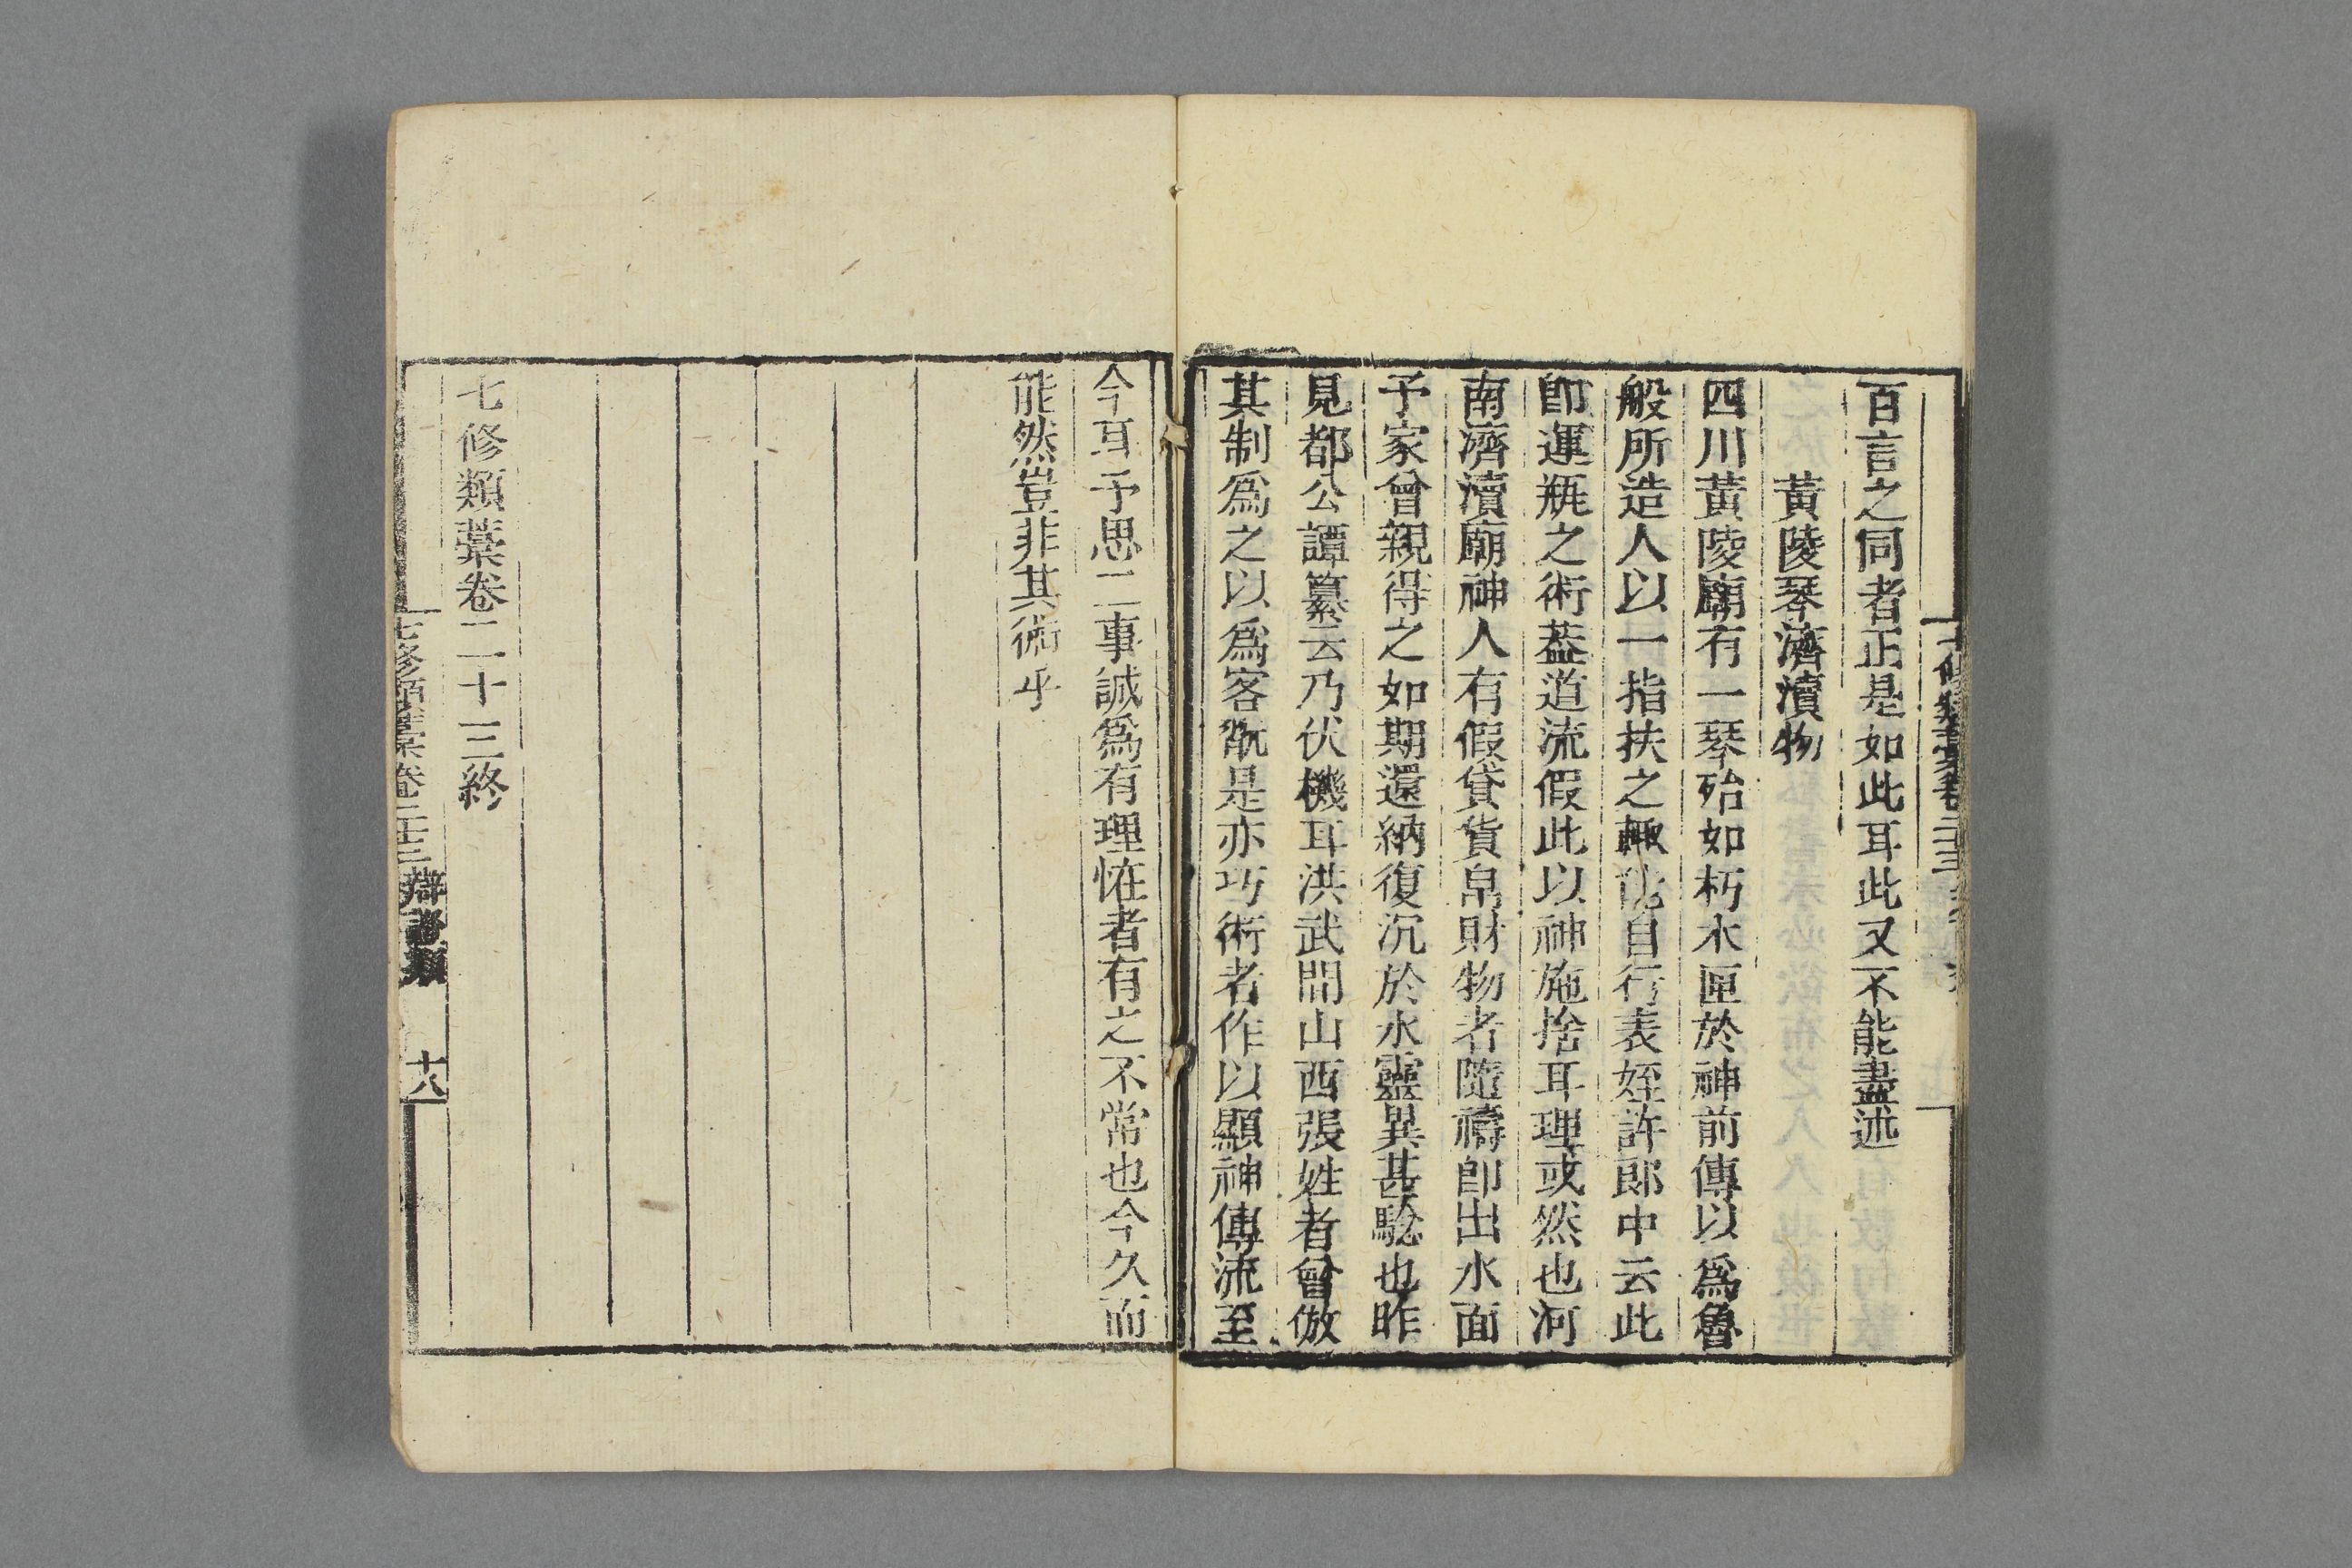 百言之同者正是如此耳此又不能盡述
黃陵琴濟瀆物
四川黃陵廟有一琴殆如朽木匣於神前傳以爲魯
般所造人以一指扶之輙能自行表姪許郞中云此
卽運甁之術葢道流假此以神施捨耳理或然也河
南濟瀆廟神人有假貸貨帛財物者隨禱卽出水面
予家曾親得之如期還納復沉於水靈異甚騐也昨
見都公譚纂云乃伏機耳洪武間山西張姓者曾倣
其制爲之以爲客翫是亦巧術者作以顯神傳流至
今耳予思二事誠爲有理恠者有之不常也今久而
能然豈非其術乎
七修類藁卷二十三終
七修類藁卷二十三 辯證類 十八